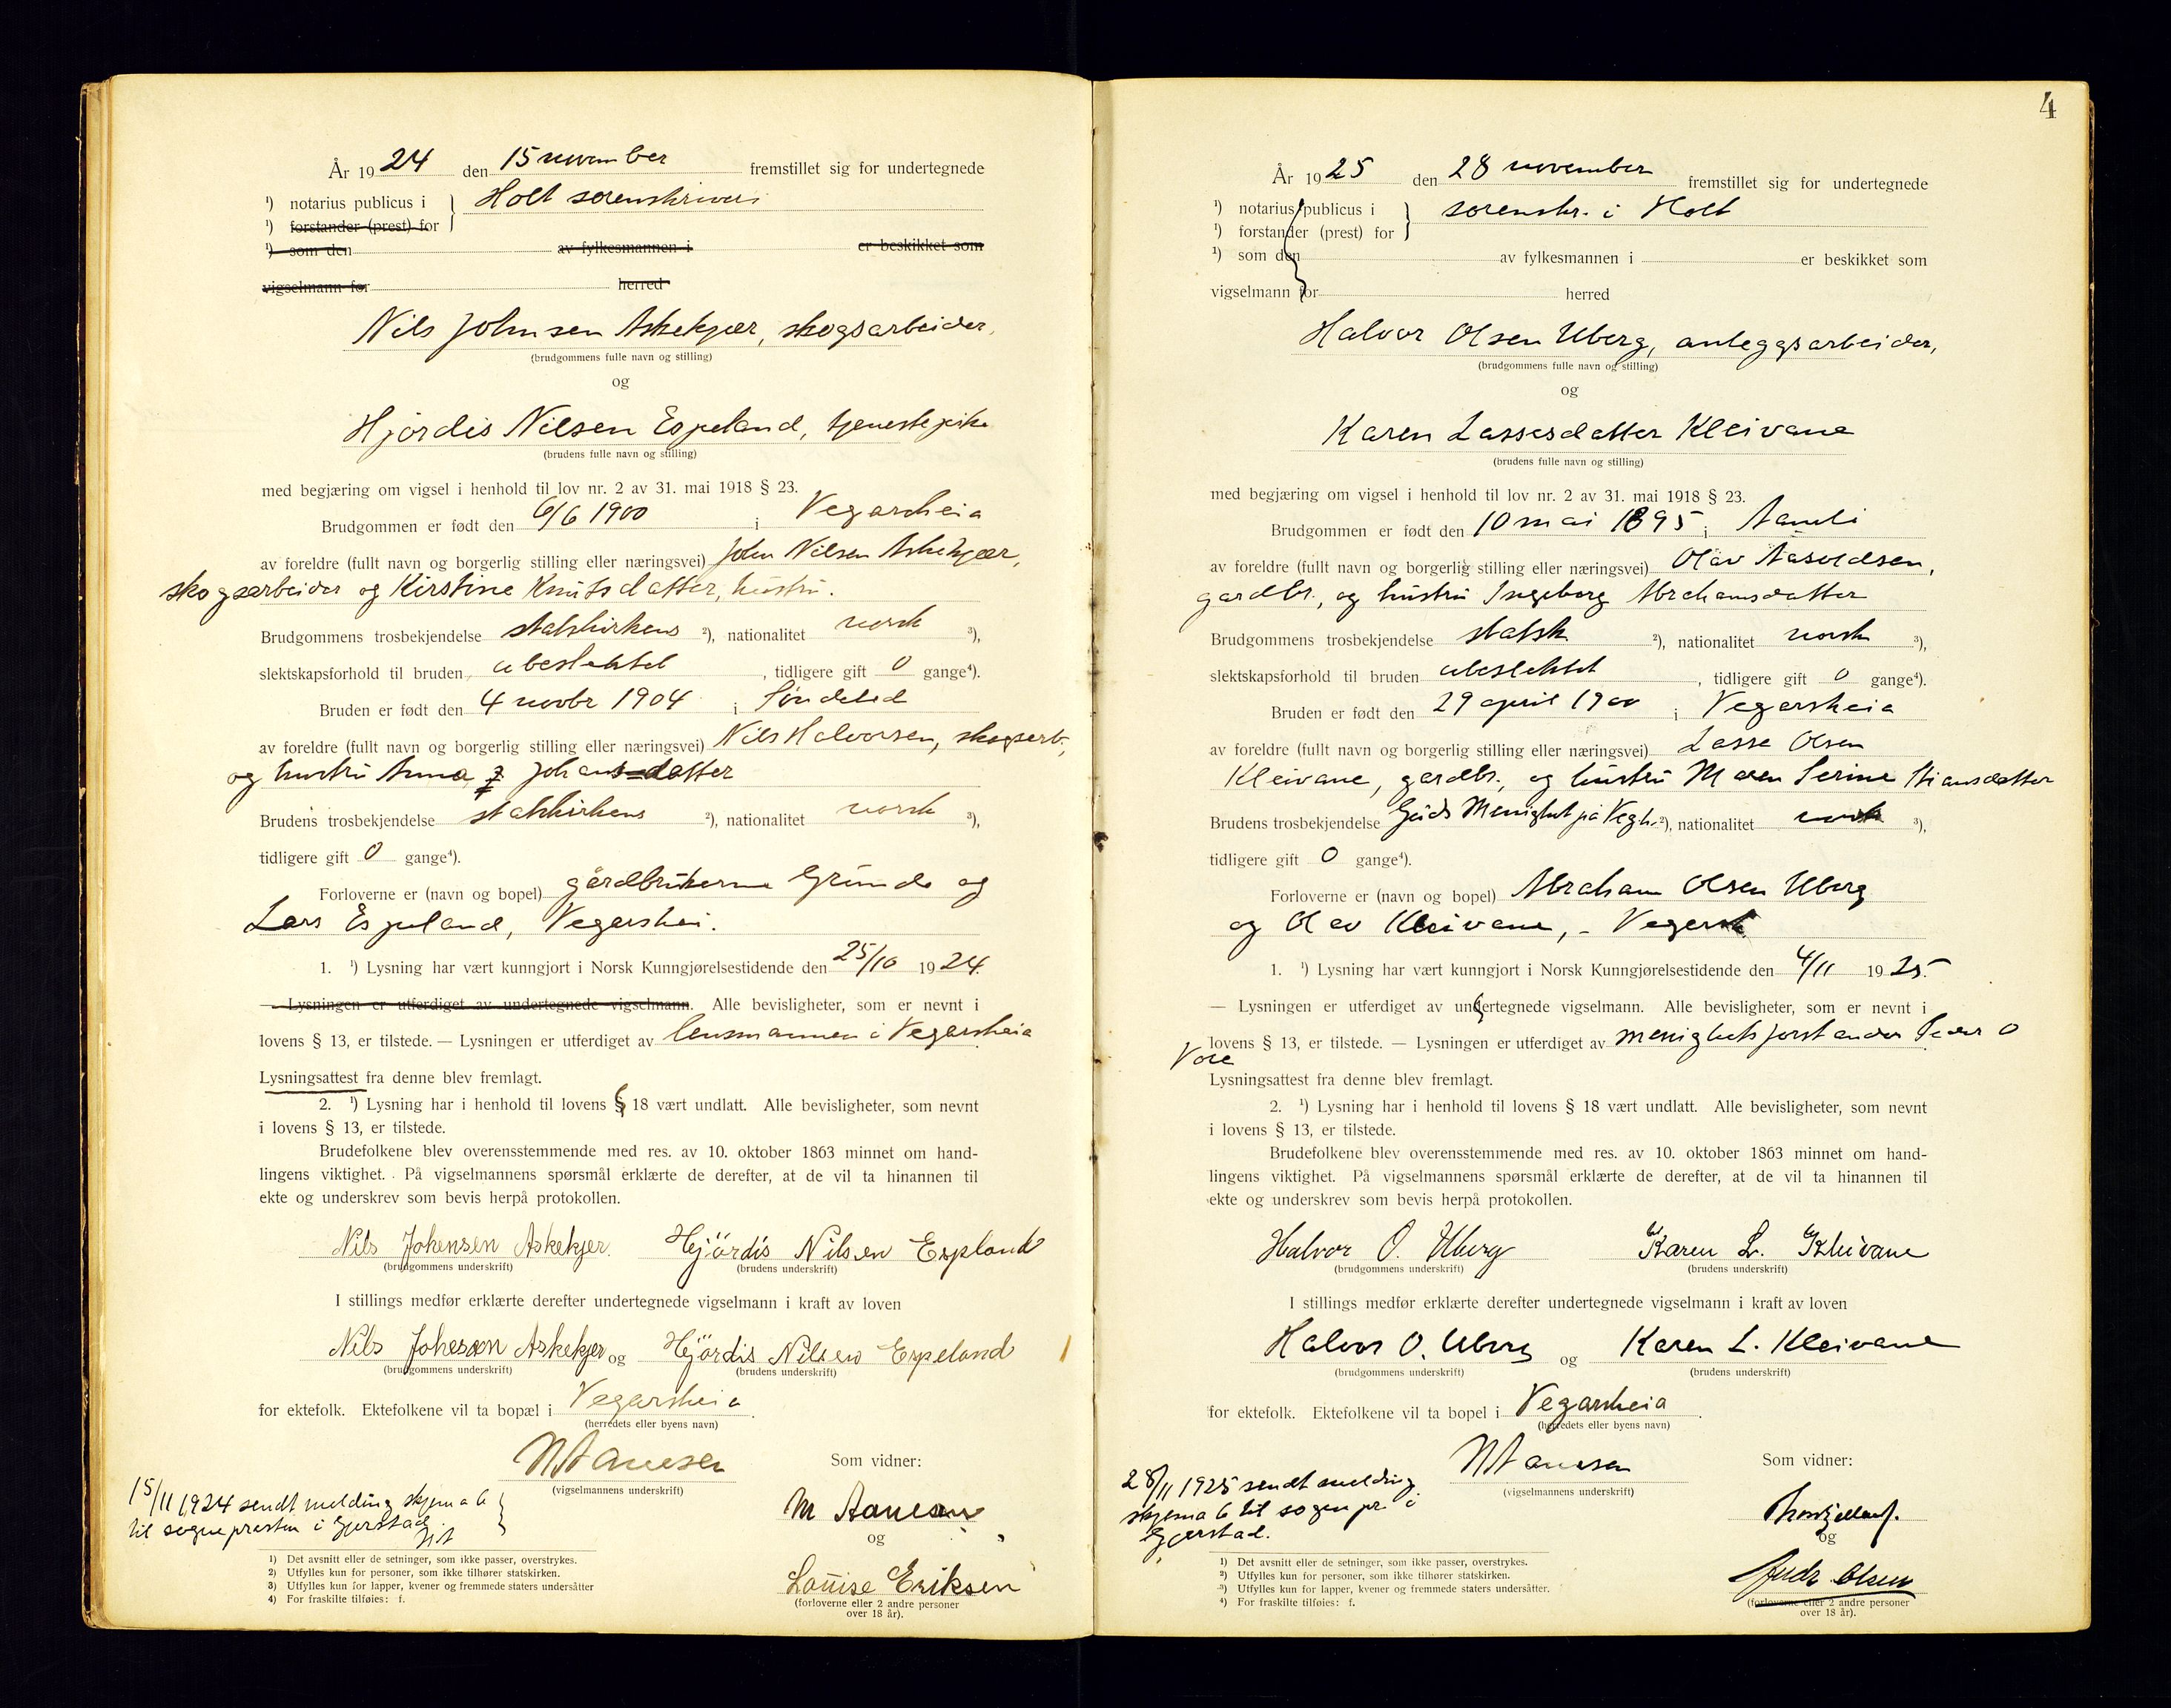 År 1924 den 15 november fremstillet sig for undertegnede
¹) notarius publicus i } Holt sorenskriveri
¹) forstander (prest) for
¹) som den av fylkesmannen i er beskikket som
vigselmann for herred
Nils Johnsen Askekjær, skogsarbeider,
(brudgommens fulle navn og stilling)
og
Hjørdis Nilsen Espeland, tjenestepike
(brudens fulle navn og stilling)
med begjæring om vigsel i henhold til lov nr. 2 av 31. mai 1918 § 23.
Brudgommen er født den 6/6 1900 i Vegarsheia
av foreldre (fullt navn og borgerlig stilling eller næringsvei) John Nilsen Askekjær,
skogsarbeider og Kirstine Knutsdatter, hustru.
Brudgommens trosbekjendelse statskirkens ²), nationalitet norsk ³),
slektskapsforhold til bruden ubeslektet, tidligere gift 0 gange⁴).
Bruden er født den 4 novbr 1904 i Søndeled
av foreldre (fullt navn og borgerlig stilling eller næringsvei) Nils Halvorsen, skogsarb.,
og hustru Anna Johansdatter
Brudens trosbekjendelse statskirkens ²), nationalitet norsk ³),
tidligere gift 0 gange⁴).
Forloverne er (navn og bopel) gårdbrukerne Gunde og
Lars Espeland, Vegarshei.
1. ¹) Lysning har vært kunngjort i Norsk Kunngjørelsestidende den 25/10 1924.
— Lysningen er utferdiget av undertegnede vigselmann. Alle bevisligheter, som er nevnt i
lovens § 13, er tilstede. — Lysningen er utferdiget av lensmannen i Vegarsheia
Lysningsattest fra denne blev fremlagt.
2. ¹) Lysning har i henhold til lovens § 18 vært undlatt. Alle bevisligheter, som nevnt
i lovens § 13, er tilstede.
Brudefolkene blev overensstemmende med res. av 10. oktober 1863 minnet om hand-
lingens viktighet. På vigselmannens spørsmål erklærte de derefter, at de vil ta hinannen til
ekte og underskrev som bevis herpå protokollen.
Nils Johensen Askekjer. Hejördis Nilsen Espland
(brudgommens underskrift) (brudens underskrift)
I stillings medfør erklærte derefter undertegnede vigselmann i kraft av loven
Nils Johesen Askekjer og Hejördis Nilsen Espeland
(brudgommens underskrift) (brudens underskrift)
for ektefolk. Ektefolkene vil ta bopæl i Vegarsheia.
(herredets eller byens navn)
N Aanesen Som vidner:
(vigselmannens underskrift)
15/11 1924 sendt melding skjema 6
til sogneprsten i Gjerstad
M Aanesen
og
Louise Eriksen
(forloverne eller 2 andre personer
over 18 år).
1) Det avsnitt eller de setninger, som ikke passer, overstrykes.
2) Utfylles kun for personer, som ikke tilhører statskirken.
3) Utfylles kun for lapper, kvener og fremmede staters undersåtter
4) For fraskilte tilføies: f.
4
År 1925 den 28 november fremstillet sig for undertegnede
¹) notarius publicus i } sorenskr. i Holt
¹) forstander (prest) for
¹) som den av fylkesmannen i er beskikket som
vigselmann for herred
Halvor Olsen Uberg, anleggsarbeider,
(brudgommens fulle navn og stilling)
og
Karen Lassesdatter Kleivane
(brudens fulle navn og stilling)
med begjæring om vigsel i henhold til lov nr. 2 av 31. mai 1918 § 23.
Brudgommen er født den 10 mai 1895 i Aamli
av foreldre (fullt navn og borgerlig stilling eller næringsvei) Olav Aasvoldsen,
gardbr., og hustru Ingeborg Abrahamsdatter
Brudgommens trosbekjendelse statsk ²), nationalitet norsk ³),
slektskapsforhold til bruden ubeslektet, tidligere gift 0 gange⁴).
Bruden er født den 29 april 1900 i Vegarsheia
av foreldre (fullt navn og borgerlig stilling eller næringsvei) Lasse Olsen
Kleivane, gardbr., og hustru Maren Serine Stiansdatter
Brudens trosbekjendelse Guds Menighet på Vegh. ²), nationalitet norsk ³),
tidligere gift 0 gange⁴).
Forloverne er (navn og bopel) Abraham Olsen Uberg
og Olav Kleivane, - Vegersh.
1. ¹) Lysning har vært kunngjort i Norsk Kunngjørelsestidende den 4/11 1925.
— Lysningen er utferdiget av undertegnede vigselmann. Alle bevisligheter, som er nevnt i
lovens § 13, er tilstede. — Lysningen er utferdiget av menighetsforstander Peder O
Voie
Lysningsattest fra denne blev fremlagt.
2. ¹) Lysning har i henhold til lovens § 18 vært undlatt. Alle bevisligheter, som nevnt
i lovens § 13, er tilstede.
Brudefolkene blev overensstemmende med res. av 10. oktober 1863 minnet om hand-
lingens viktighet. På vigselmannens spørsmål erklærte de derefter, at de vil ta hinannen til
ekte og underskrev som bevis herpå protokollen.
Halvor O. Uberg Karen L. Kleivane
(brudgommens underskrift) (brudens underskrift)
I stillings medfør erklærte derefter undertegnede vigselmann i kraft av loven
Halvor O. Uberg og Karen L. Kleivane
(brudgommens underskrift) (brudens underskrift)
for ektefolk. Ektefolkene vil ta bopel i Vegarsheia.
(herredets eller byens navn)
N Aanesen Som vidner:
(vigselmannens underskrift)
28/11 1925 sendt melding
skjema 6 til sognepr. i
Gjerstad.
og
Andr. Olsen
(forloverne eller 2 andre personer
over 18 år).
1) Det avsnitt eller de setninger, som ikke passer, overstrykes.
2) Utfylles kun for personer, som ikke tilhører statskirken.
3) Utfylles kun for lapper, kvener og fremmede staters undersåtter.
4) For fraskilte tilføies: f.